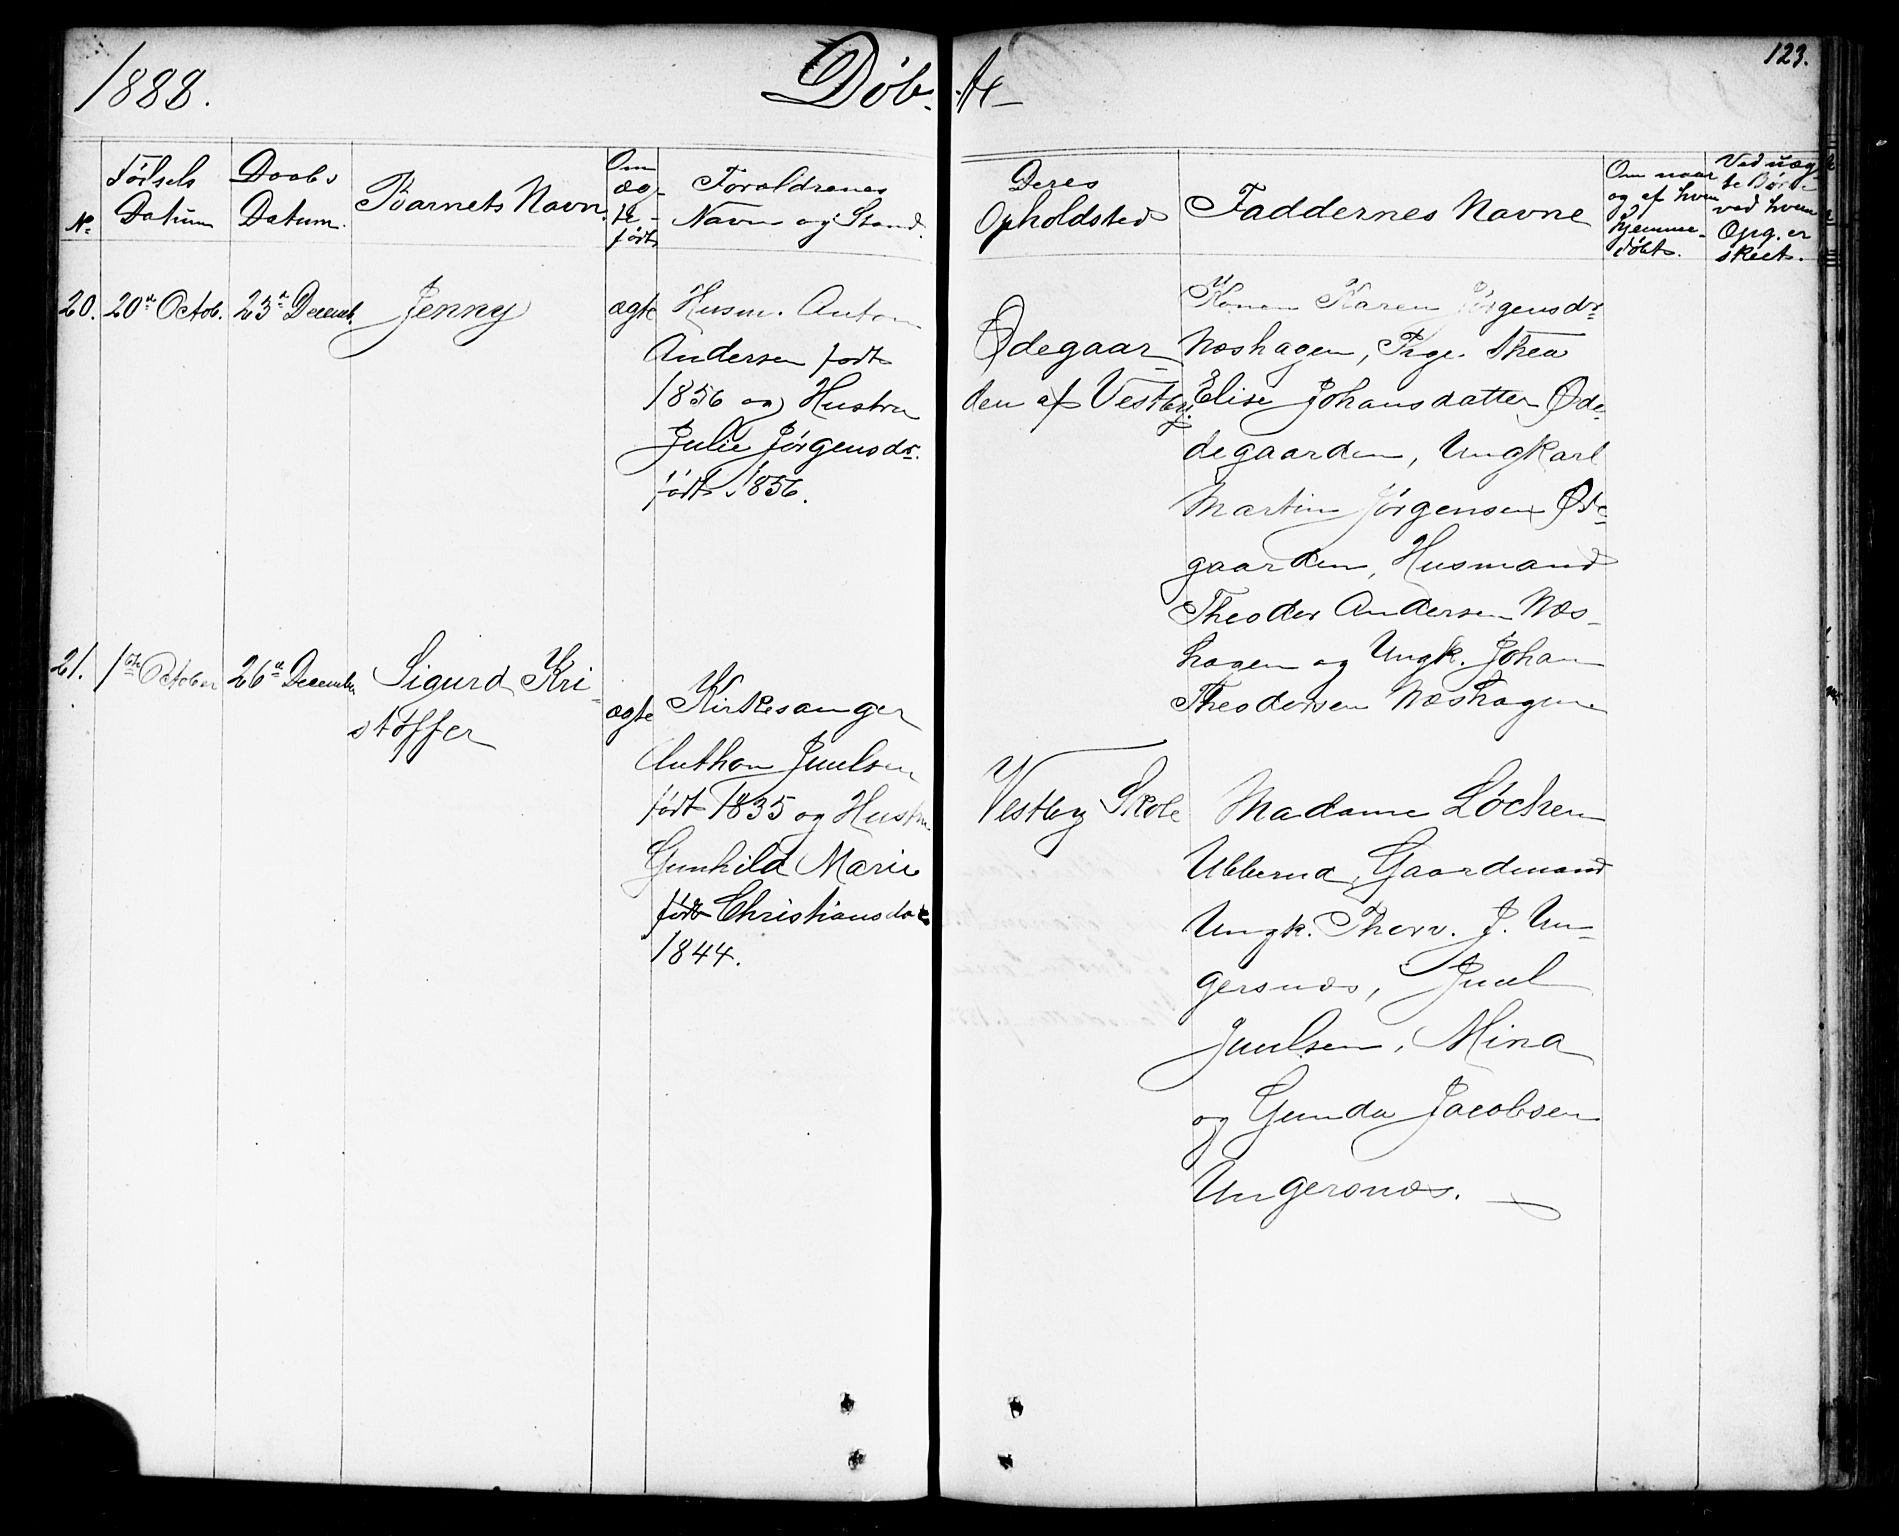 1888.
Døb-
te
123.
No
Fødsels
Datum
Daabs
Datum.
Barnets Navn.
Om
æg-
te-
født
Forældrenes
Navn og Stand.
Deres
Opholdsted
Faddernes Navne
Om naar
og af hvem
hjemme-
døbt.
Ved uæg
te Børn
ved hvem
Opg. er
skeet.
20.
20de Octob.
23de Decemb.
Jenny
ægte
Husm. Anton
Andersen født
1856 og Hustru
Julie Jørgensdr.
født 1856.
Ødegaar-
den af Vestby.
Konen Karen Jørgensdr.
Næshagen, Pige Thea
Elise Johansdatter Øde-
degaarden, Ungkarl
Martin Jørgensen Øde-
gaarden, Husmand
Theodor Andersen Næs-
hagen og Ungk. Johan
Theodorsen Næshagen
21.
1ste October
26de December
Sigurd Kri-
stoffer
ægte
Kirkesanger
Anthon Juulsen
født 1835 og Hustru
Gunhild Marie
født Christiansdat
1844.
Vestby Skole
Madame Løchen
Ubberud, Gaardmand
Ungk. Thorv. J. Un-
gersnæs, Juul
Juulsen, Mina
og Gunda Jacobsen
Ungersnæs.